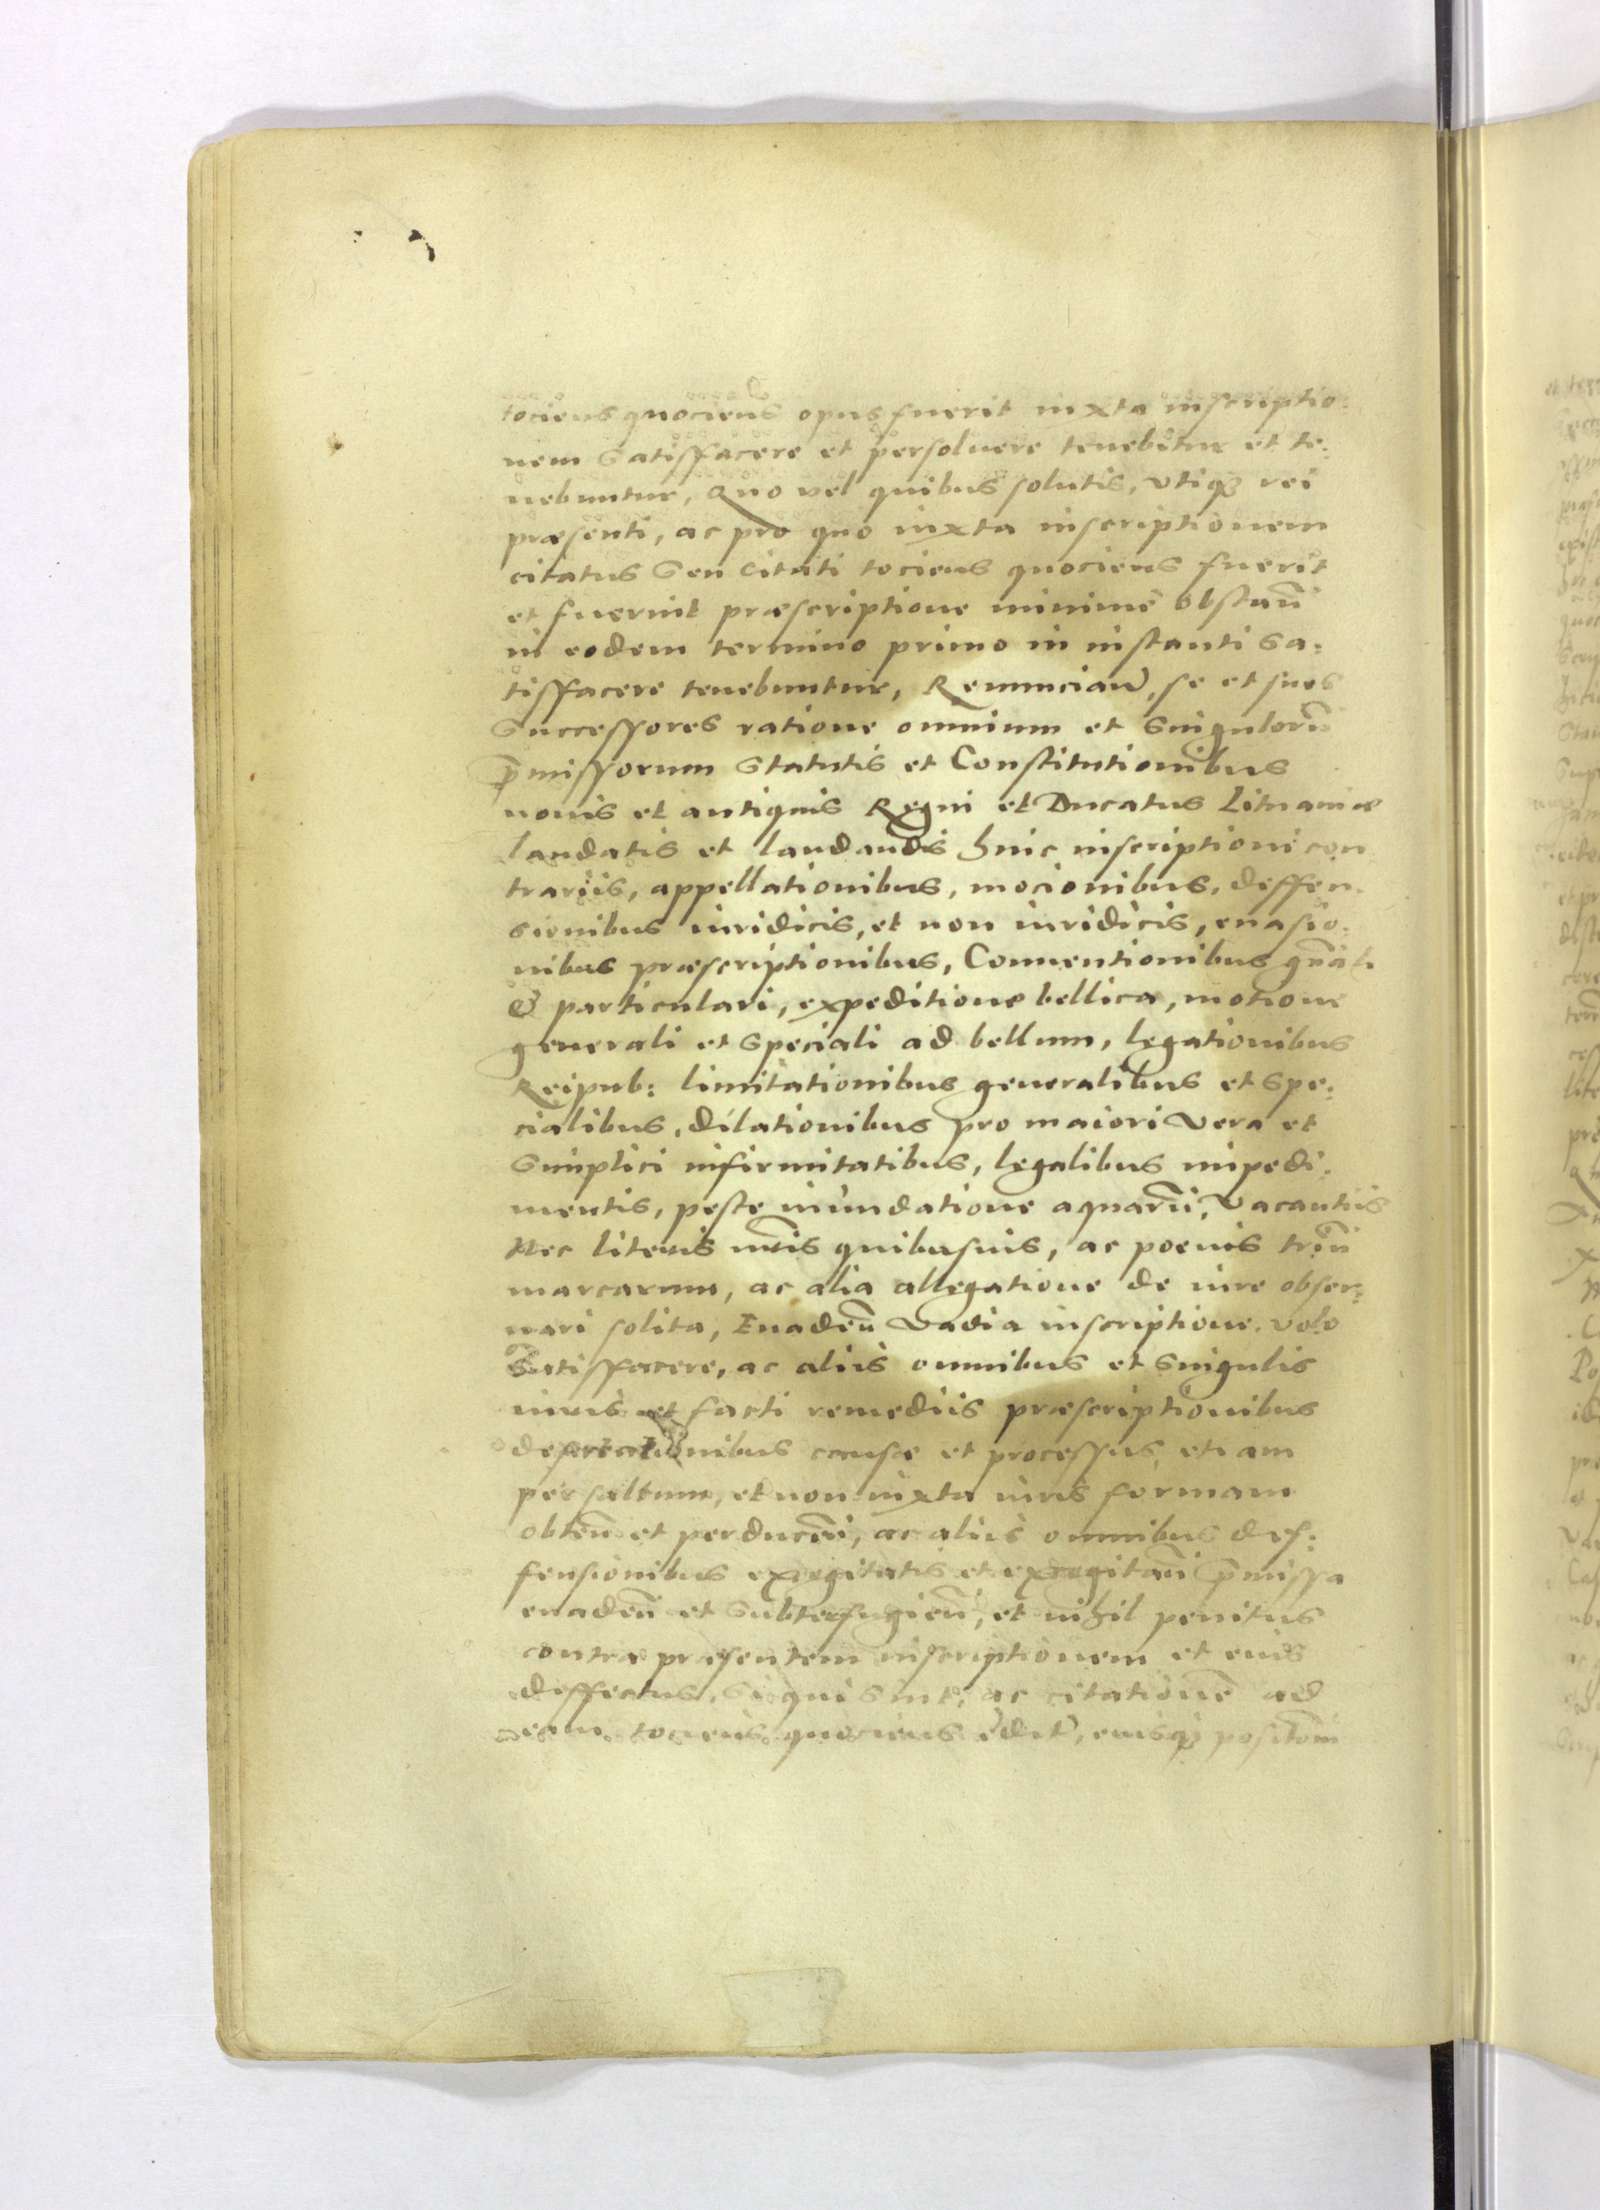 tociens quociens opus fuerit iuxta inscriptio:
nem Satisffacere et persoluere tenebitur et te:
nebuntur, Quo vel quibus solutis, vtiq3 rei
præsenti, ac pro quo iuxta inscriptionem
citatus Seu Citati tociens quociens fuerit
et fuerint præscriptione minime obstan̄
in eodem termino primo in instanti Sa:
tisffacere tenebuntur, Renuncian̄, se et suos
Successores ratione omnium et Singulorū
p̄missorum Statutis et Constitutionibus
nouis et antiquis Regni et Ducatus Lituaniæ
laudatis et laudandis huic inscriptioni con
trariis, appellationibus, mocionibus, deffen:
sionibus iuridicis, et non iuridicis, euasio:
nibus præscriptionibus, Conuentionibus gn̄ali
& particulari, expeditione bellica, motione
generali et Speciali ad bellum, legationibus
Reipub: limitationibus generalibus et Spe:
cialibus, dilationibus pro maiori vera et
Simplici infirmitatibus, legalibus impedi:
mentis, peste inundatione aquarū, Vacantiis
Nec literis nr̄is quibusuis, ac poenis triū
marcarum, ac alia allegatione de iure obser:
uari solita, Euaden̄ Vadia inscriptione. volo
Satisffacere, ac aliis omnibus et Singulis
iuris et facti remediis præscriptionibus
deserctionibus causæ et processus etiam
per saltum, et non iuxta iuris formam
obten̄ et perducen̄, ac aliis omnibus def:
fensionibus excogitatis et excogitan̄ p̄missa
euaden̄ et Subterfugien̄, et nihil penitus
contra præsentem inscriptionem et eius
deffectus, Si qui Sint, ac citationē ad
eam tociens quociens ędit, eiusq3 positōni